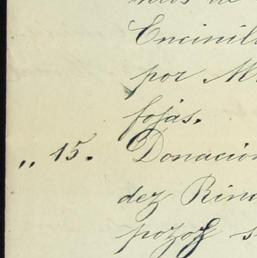 Encinill
por M
fojas.
„ 15. Donación
dez Rin
pozos s